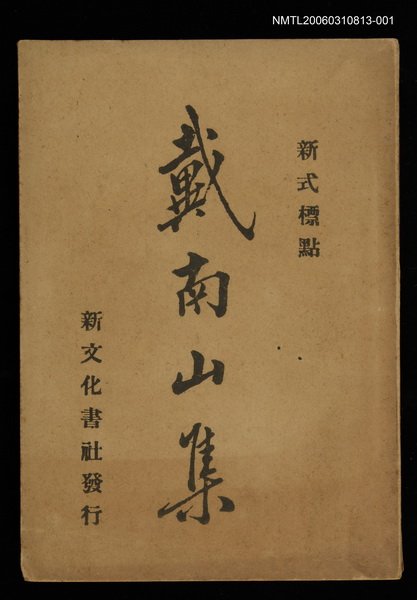 NMTL20060310813-001
新式標點
戴南山集
新文化書社發行